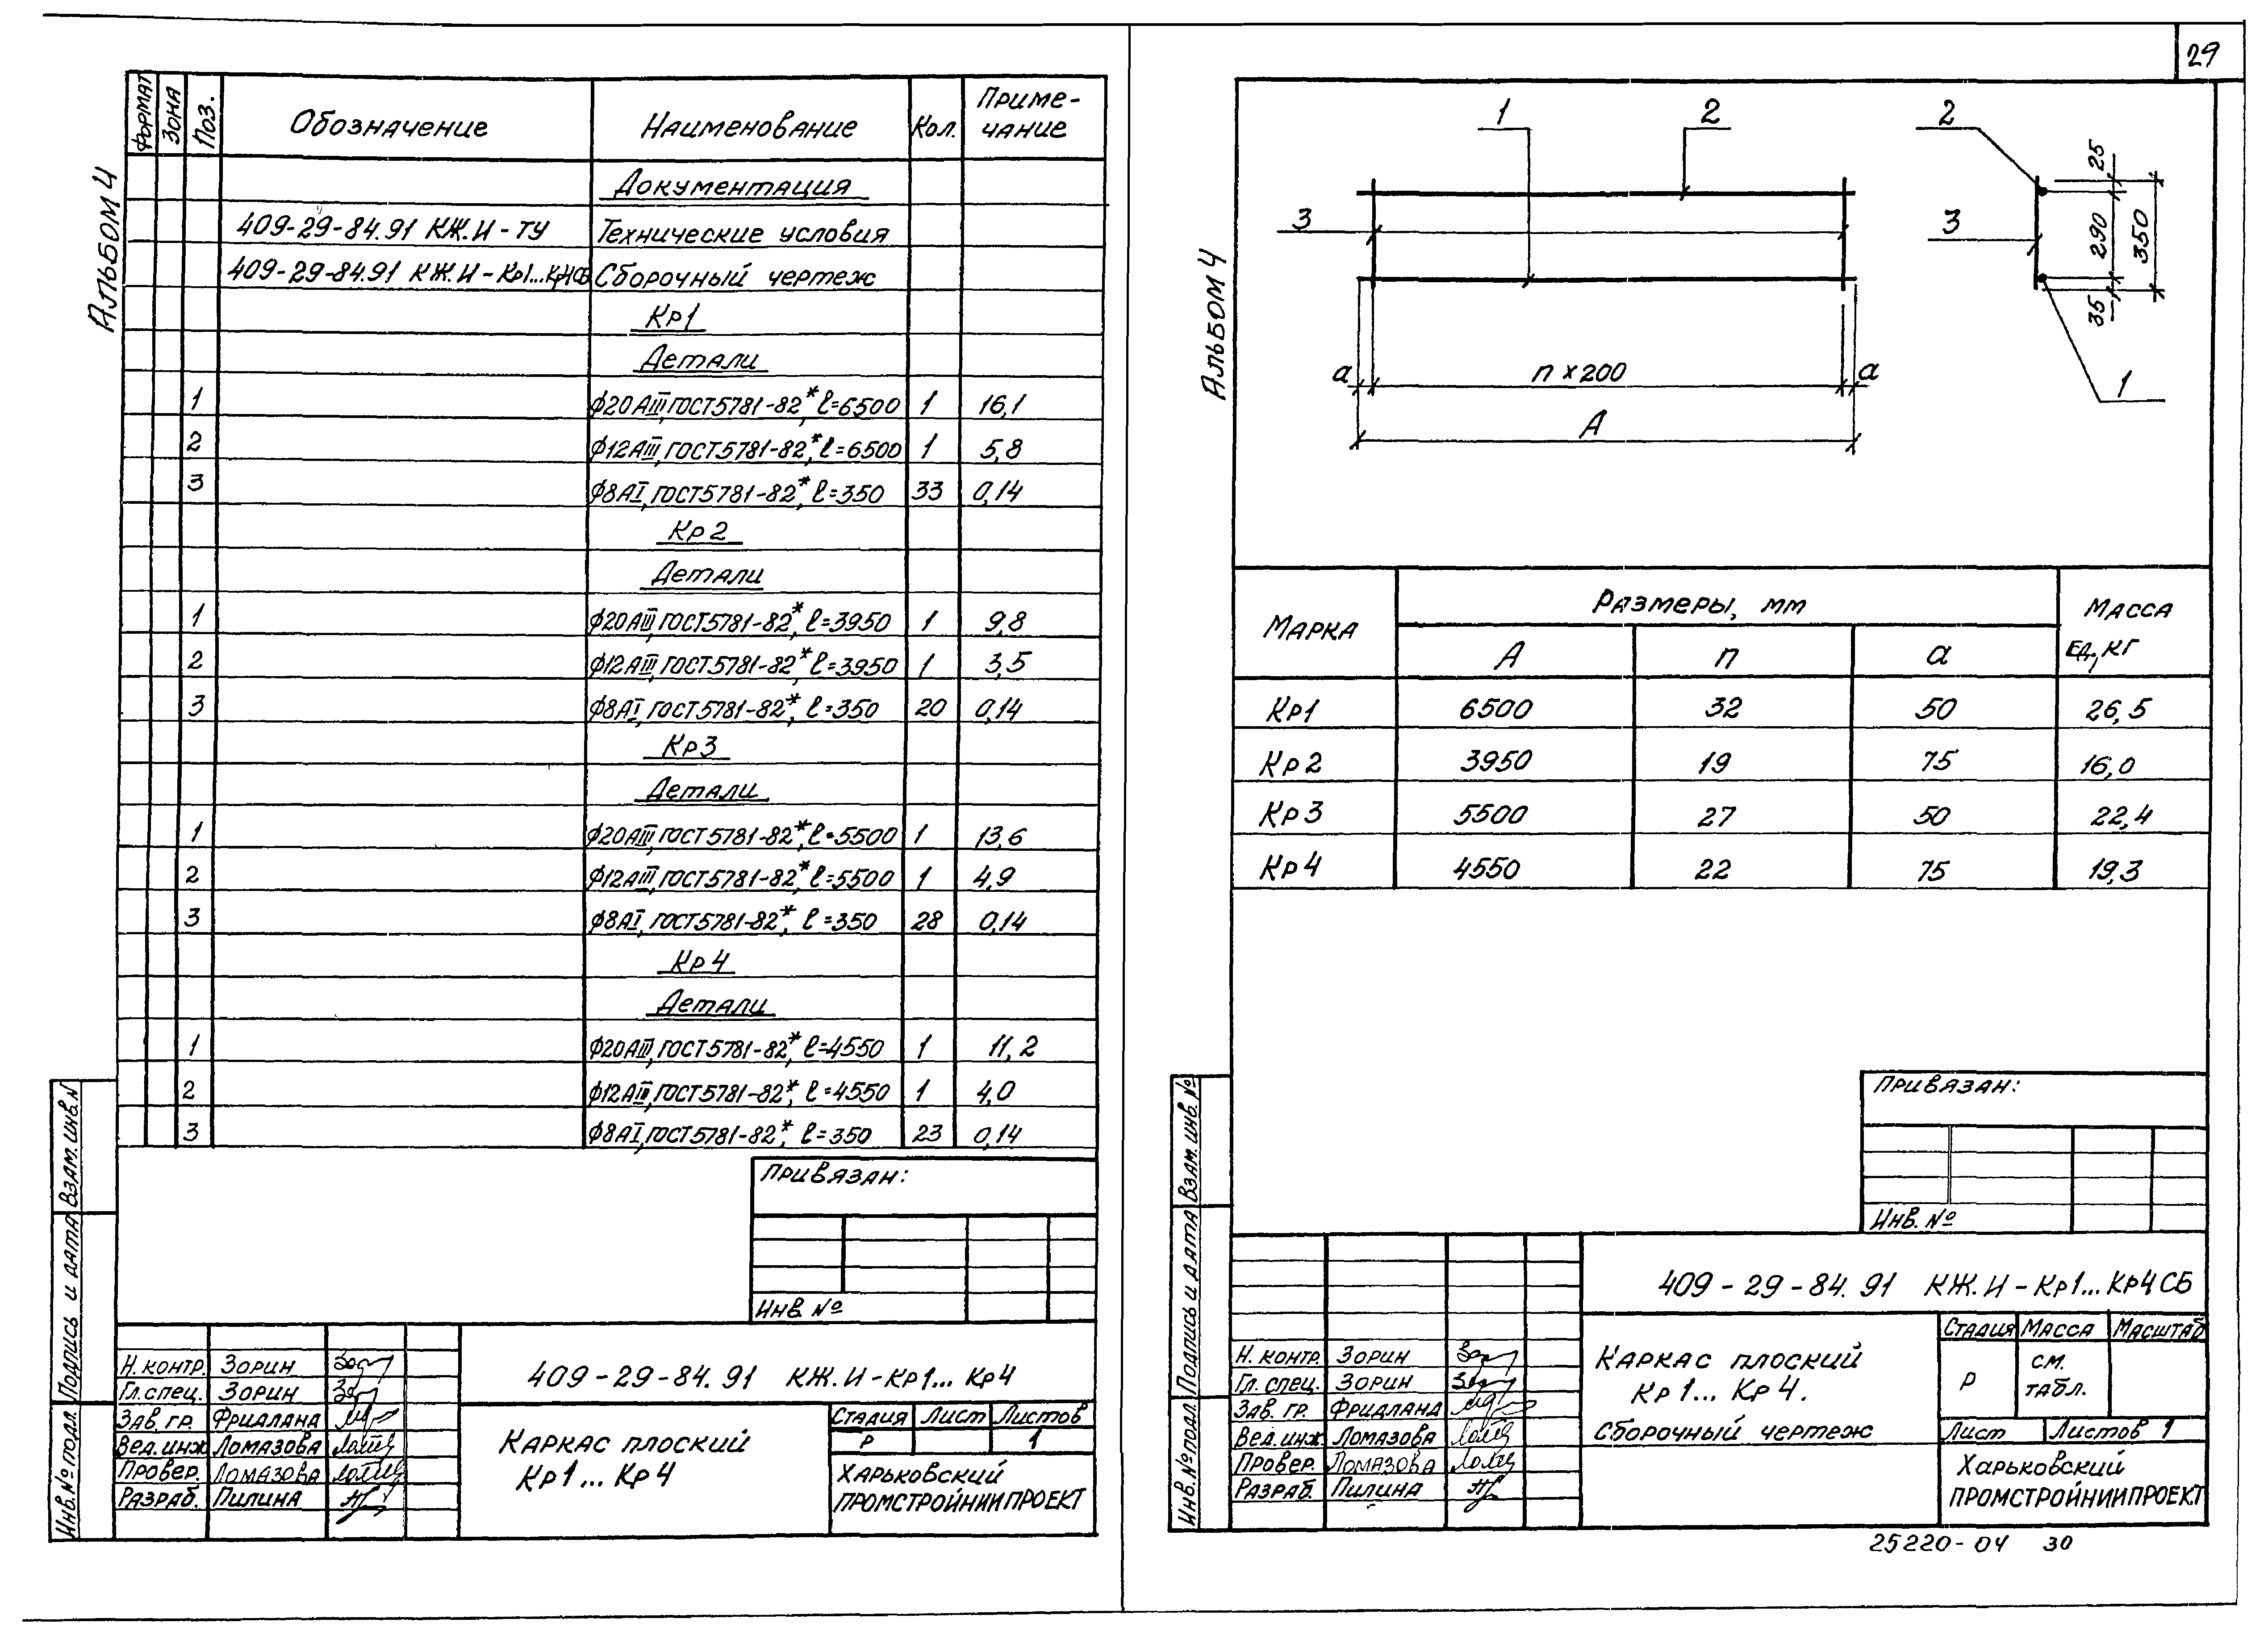 29
Альбом 4
Формат Зона Поз. Обозначение Наименование Кол. Приме-
чание
Документация
409-29-84.91 КЖ.И-ТУ Технические условия
409-29-84.91 КЖ.И-Кр1...Кр4СБ Сборочный чертеж
Кр1
Детали
1 ф20АIII, ГОСТ5781-82*, l=6500 1 16,1
2 ф12АIII, ГОСТ5781-82*, l=6500 1 5,8
3 ф8АI, ГОСТ5781-82*, l=350 33 0,14
Кр2
Детали
1 ф20АIII, ГОСТ5781-82*, l=3950 1 9,8
2 ф12АIII, ГОСТ5781-82*, l=3950 1 3,5
3 ф8АI, ГОСТ5781-82*, l=350 20 0,14
Кр3
Детали
1 ф20АIII, ГОСТ5781-82*, l=5500 1 13,6
2 ф12АIII, ГОСТ5781-82*, l=5500 1 4,9
3 ф8АI, ГОСТ5781-82*, l=350 28 0,14
Кр4
Детали
1 ф20АIII, ГОСТ5781-82*, l=4550 1 11,2
2 ф12АIII, ГОСТ5781-82*, l=4550 1 4,0
3 ф8АI, ГОСТ5781-82*, l=350 23 0,14
Привязан:
Инв. №
Инв.№ подл. Подпись и дата Взам. инв. N
Н. контр. Зорин
Гл. спец. Зорин
Зав. гр. Фридлана
Вед. инж. Ломазова
Провер. Ломазова
Разраб. Пилина
409-29-84.91 КЖ.И-Кр1...Кр4
Каркас плоский
Кр1...Кр4
Стадия Лист Листов
Р 1
Харьковский
Промстройниипроект
Альбом 4
1 2 2
3 3
25
290
350
35
1
а n x 200 а
А
Марка Размеры, мм Масса
ед., кг
А n а
Кр1 6500 32 50 26,5
Кр2 3950 19 75 16,0
Кр3 5500 27 50 22,4
Кр4 4550 22 75 19,3
Привязан:
Инв. №
Инв.№ подл. Подпись и дата Взам. инв. №
Н. контр. Зорин
Гл. спец. Зорин
Зав. гр. Фридлана
Вед. инж. Ломазова
Провер. Ломазова
Разраб. Пилина
409-29-84.91 КЖ.И-Кр1...Кр4СБ
Каркас плоский
Кр1...Кр4.
Сборочный чертеж
Стадия Масса Масштаб
Р см.
табл.
Лист Листов 1
Харьковский
Промстройниипроект
25220-04 30